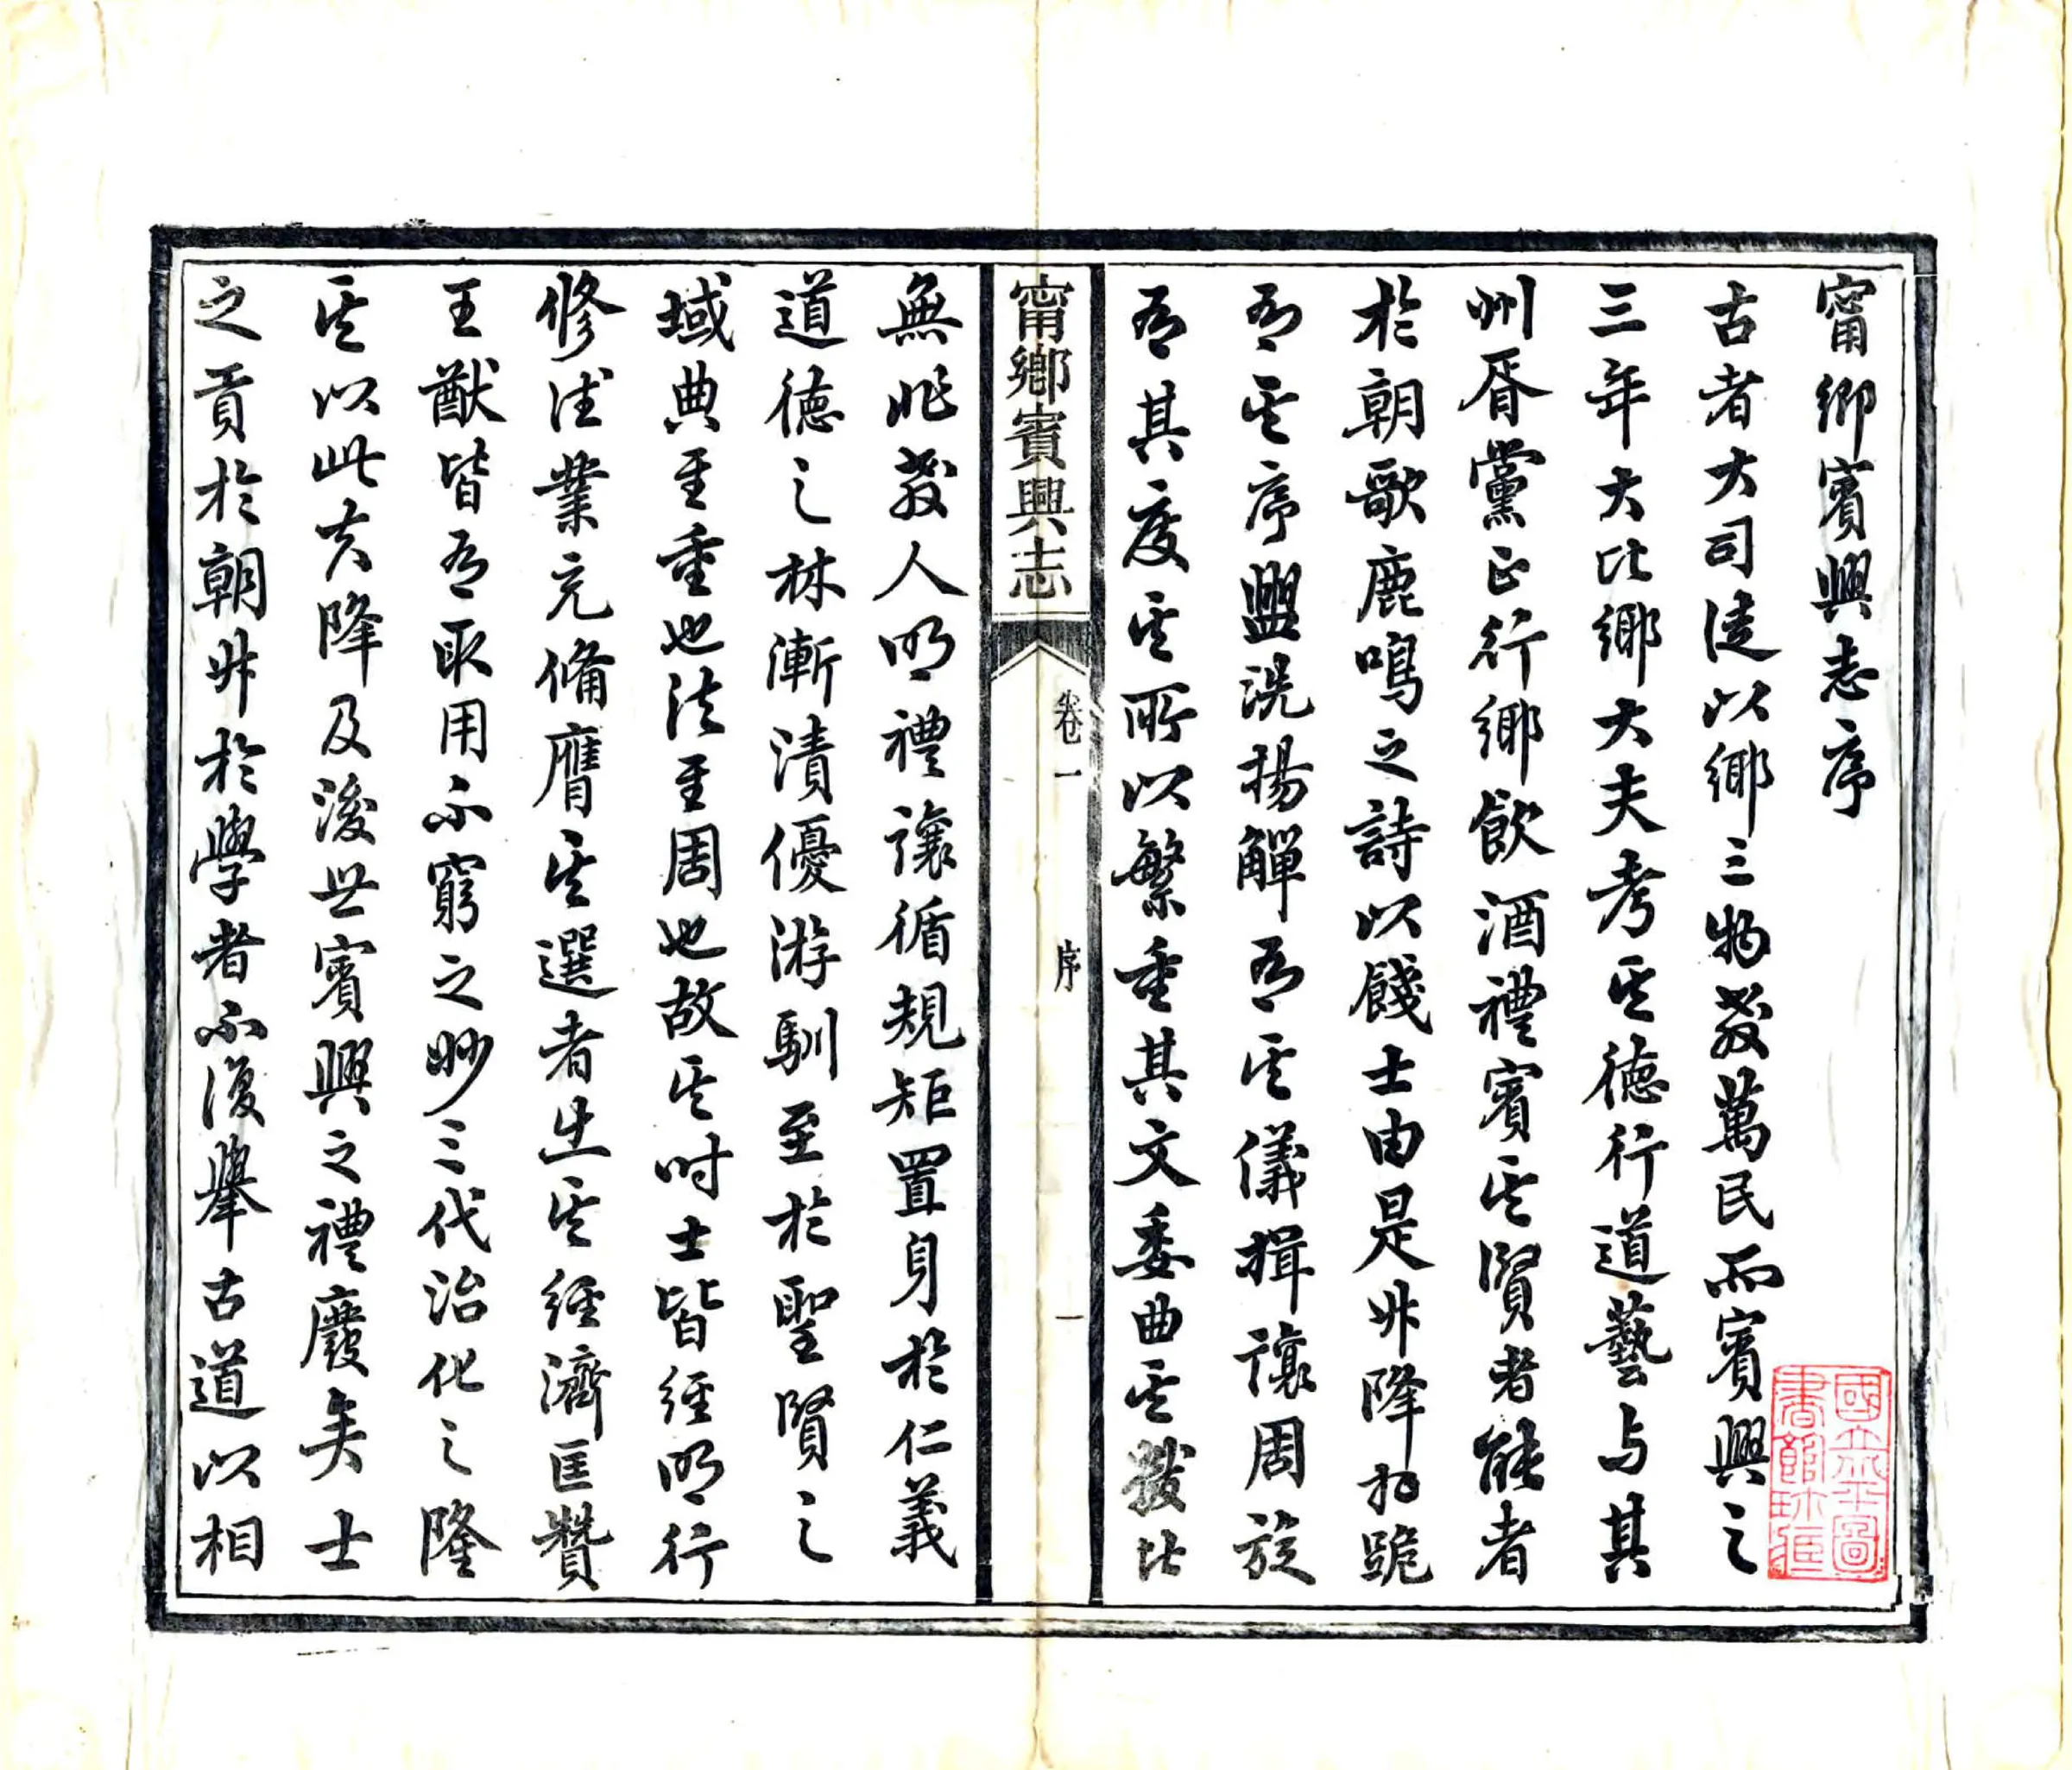 甯鄉賓興志序
古者大司徒以鄉三物教萬民而賓興之
三年大比鄉大夫考其德行道藝与其
州胥黨正行鄉飲酒禮賓其賢者能者
於朝歌鹿鳴之詩以餞士由是升降拜跪
有其序盥洗揚觶有其儀揖讓周旋
有其度其所以繁重其文委曲其數比
甯鄉賓興志
卷一
序
一
無非教人明禮讓循規矩置身於仁義
道德之林漸漬優游馴至於聖賢之
域典至重也法至周也故其时士皆經明行
修法業充備膺其選者出其經濟匡贊
王猷皆有取用不窮之妙三代治化之隆
其以此矣降及後世賓興之禮廢矣士
之貢於朝升於學者不復舉古道以相
國立北平圖
書館珍藏